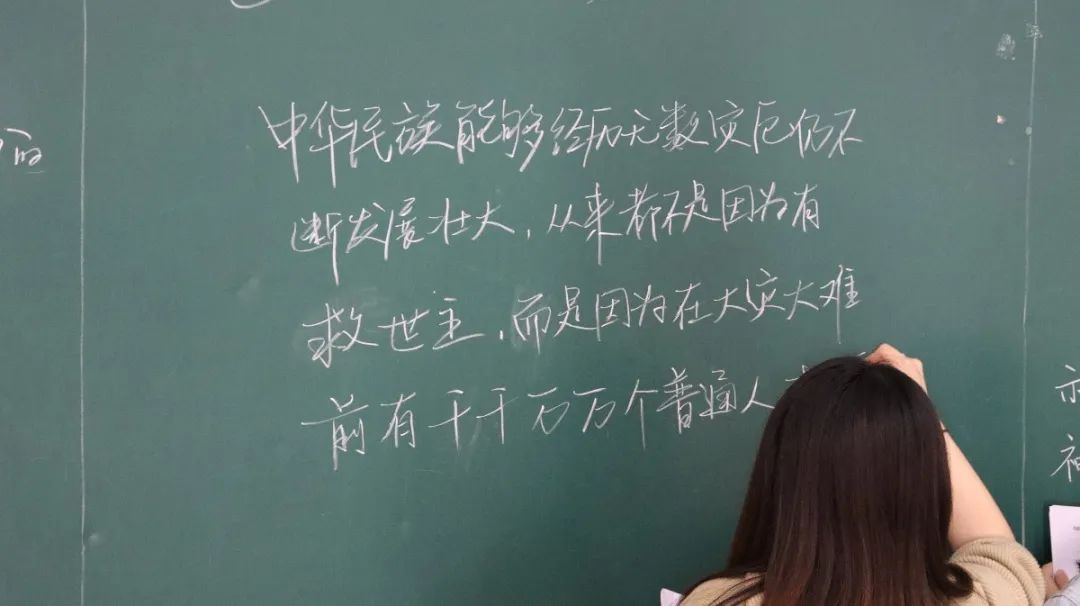 中华民族能够经历无数灾厄仍不
断发展壮大,从来都不是因为有
救世主,而是因为在大灾大难
前有千千万万个普通人
的